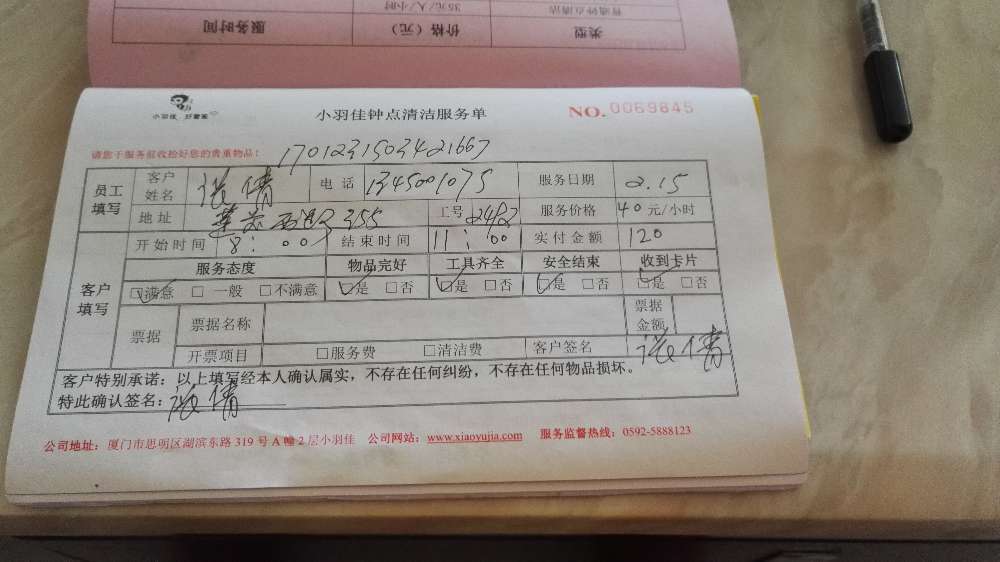 类型 价格（元） 服务时间
普通钟点清洁 35元/人/小时
小羽佳 好管家
小羽佳钟点清洁服务单 NO. 0069845
请您于服务前收捡好您的贵重物品！ 1701231503421667
员工填写 客户姓名 张倩 电话 1345001075 服务日期 2.15
地址 355 工号 2482 服务价格 40元/小时
客户填写 开始时间 8:00 结束时间 11:00 实付金额 120
服务态度 物品完好 工具齐全 安全结束 收到卡片
☑满意 □一般 □不满意 ☑是 □否 ☑是 □否 ☑是 □否 ☑是 □否
票据 票据名称 票据金额
开票项目 □服务费 □清洁费 客户签名 张倩
客户特别承诺：以上填写经本人确认属实，不存在任何纠纷，不存在任何物品损坏。
特此确认签名：张倩
公司地址：厦门市思明区湖滨东路319号A幢2层小羽佳 公司网站：www.xiaoyujia.com 服务监督热线：0592-5888123